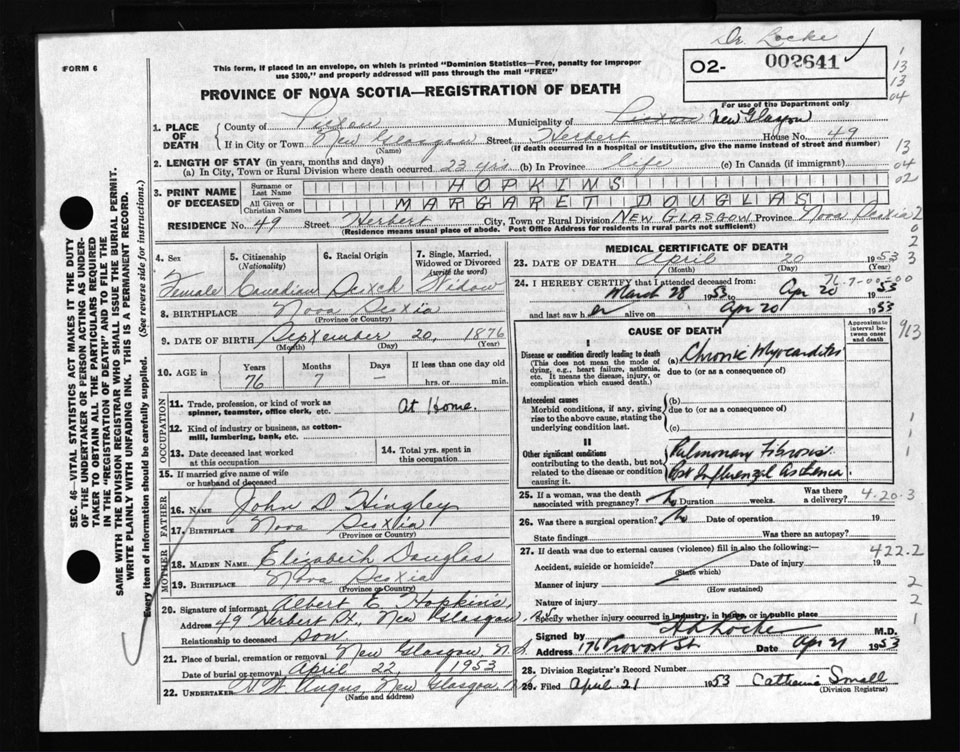 Dr. Locke
FORM 6
This form, if placed in an envelope, on which is printed "Dominion Statistics—Free, penalty for improper
use $300," and properly addressed will pass through the mail "FREE"
02- 002641
PROVINCE OF NOVA SCOTIA—REGISTRATION OF DEATH
For use of the Department only
1. PLACE OF DEATH
County of Pictou Municipality of Pictou New Glasgow
If in City or Town New Glasgow Street Herbert House No. 49
(Name) (If death occurred in a hospital or institution, give the name instead of street and number)
2. LENGTH OF STAY (in years, months and days)
(a) In City, Town or Rural Division where death occurred 23 yrs. (b) In Province life (c) In Canada (if immigrant)
3. PRINT NAME OF DECEASED
Surname or Last Name HOPKINS
All Given or Christian Names MARGARET DOUGLAS
RESIDENCE No. 49 Street Herbert City, Town or Rural Division NEW GLASGOW Province Nova Scotia
(Residence means usual place of abode. Post Office Address for residents in rural parts not sufficient)
SEC. 46—VITAL STATISTICS ACT MAKES IT THE DUTY
OF THE UNDERTAKER OR PERSON ACTING AS UNDER-
TAKER TO OBTAIN ALL THE PARTICULARS REQUIRED
IN THE "REGISTRATION OF DEATH" AND TO FILE THE
SAME WITH THE DIVISION REGISTRAR WHO SHALL ISSUE THE BURIAL PERMIT.
WRITE PLAINLY WITH UNFADING INK. THIS IS A PERMANENT RECORD.
Every item of information should be carefully supplied. (See reverse side for instructions.)
4. Sex Female
5. Citizenship (Nationality) Canadian
6. Racial Origin Scotch
7. Single, Married, Widowed or Divorced (write the word) Widow
8. BIRTHPLACE Nova Scotia
(Province or Country)
9. DATE OF BIRTH September 20, 1876
(Month) (Day) (Year)
10. AGE in Years 76 Months 7 Days – If less than one day old hrs. or min.
OCCUPATION
11. Trade, profession, or kind of work as spinner, teamster, office clerk, etc. At Home.
12. Kind of industry or business, as cotton-mill, lumbering, bank, etc.
13. Date deceased last worked at this occupation
14. Total yrs. spent in this occupation
15. If married give name of wife or husband of deceased
FATHER
16. NAME John D Hingley
17. BIRTHPLACE Nova Scotia
(Province or Country)
MOTHER
18. MAIDEN NAME Elizabeth Douglas
19. BIRTHPLACE Nova Scotia
(Province or Country)
20. Signature of informant Albert E. Hopkins,
Address 49 Herbert St, New Glasgow, N.S.
Relationship to deceased Son
21. Place of burial, cremation or removal New Glasgow, N.S.
Date of burial or removal April 22, 1953
22. UNDERTAKER Angus, New Glasgow
(Name and address)
MEDICAL CERTIFICATE OF DEATH
23. DATE OF DEATH April 20 1953
(Month) (Day) (Year)
76-7-00-00
24. I HEREBY CERTIFY that I attended deceased from
March 28 1953 to Apr 20 1953
and last saw her alive on Apr 20 1953
CAUSE OF DEATH
Approximate interval between onset and death
I
Disease or condition directly leading to death (a) Chronic Myocarditis
(This does not mean the mode of dying, e.g., heart failure, asthenia, etc. It means the disease, injury, or complication which caused death.)
due to (or as a consequence of)
Antecedent causes
Morbid conditions, if any, giving rise to the above cause, stating the underlying condition last.
(b)
due to (or as a consequence of)
(c)
II
Other significant conditions
contributing to the death, but not related to the disease or condition causing it.
Pulmonary Fibrosis
Post Influenzal Asthenia
25. If a woman, was the death associated with pregnancy? No Duration weeks. Was there a delivery? 4-20-3
26. Was there a surgical operation? No Date of operation 19
State findings Was there an autopsy?
27. If death was due to external causes (violence) fill in also the following:— 422.2
Accident, suicide or homicide? Date of injury 19
(State which)
Manner of injury
(How sustained)
Nature of injury
Specify whether injury occurred in industry, in home, or in public place
Signed by Locke M.D.
Address 176 Provost St Date Apr 21 1953
28. Division Registrar's Record Number
29. Filed April 21 1953 Catherine Small
(Division Registrar)
1
13
13
04
13
04
02
2
0
2
3
3
913
1
1
1
2
2
1